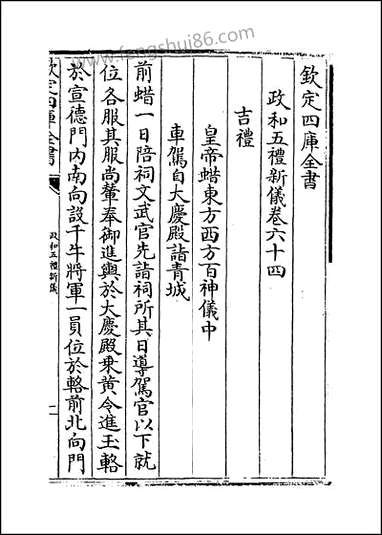 www.fengshui86.com
欽定四庫全書
政和五禮新儀卷六十四
吉禮
皇帝蜡東方西方百神儀中
車駕自大慶殿詣青城
前蜡一日陪祠文武官先詣祠所其日導駕官以下就
位各服其服尚輦奉御進輿於大慶殿乘黃令進玉輅
於宣德門內南向設千牛將軍一員位於輅前北向門
欽定四庫全書
政和五禮新儀
一